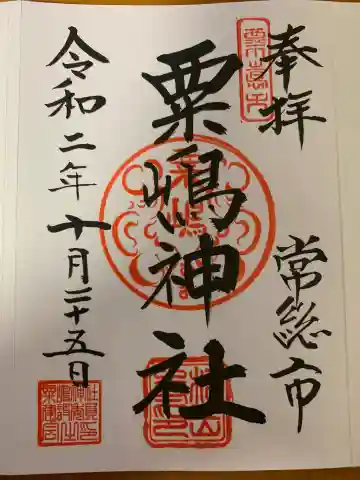 奉拝
常総市
粟嶋神社
令和二年十月二十五日